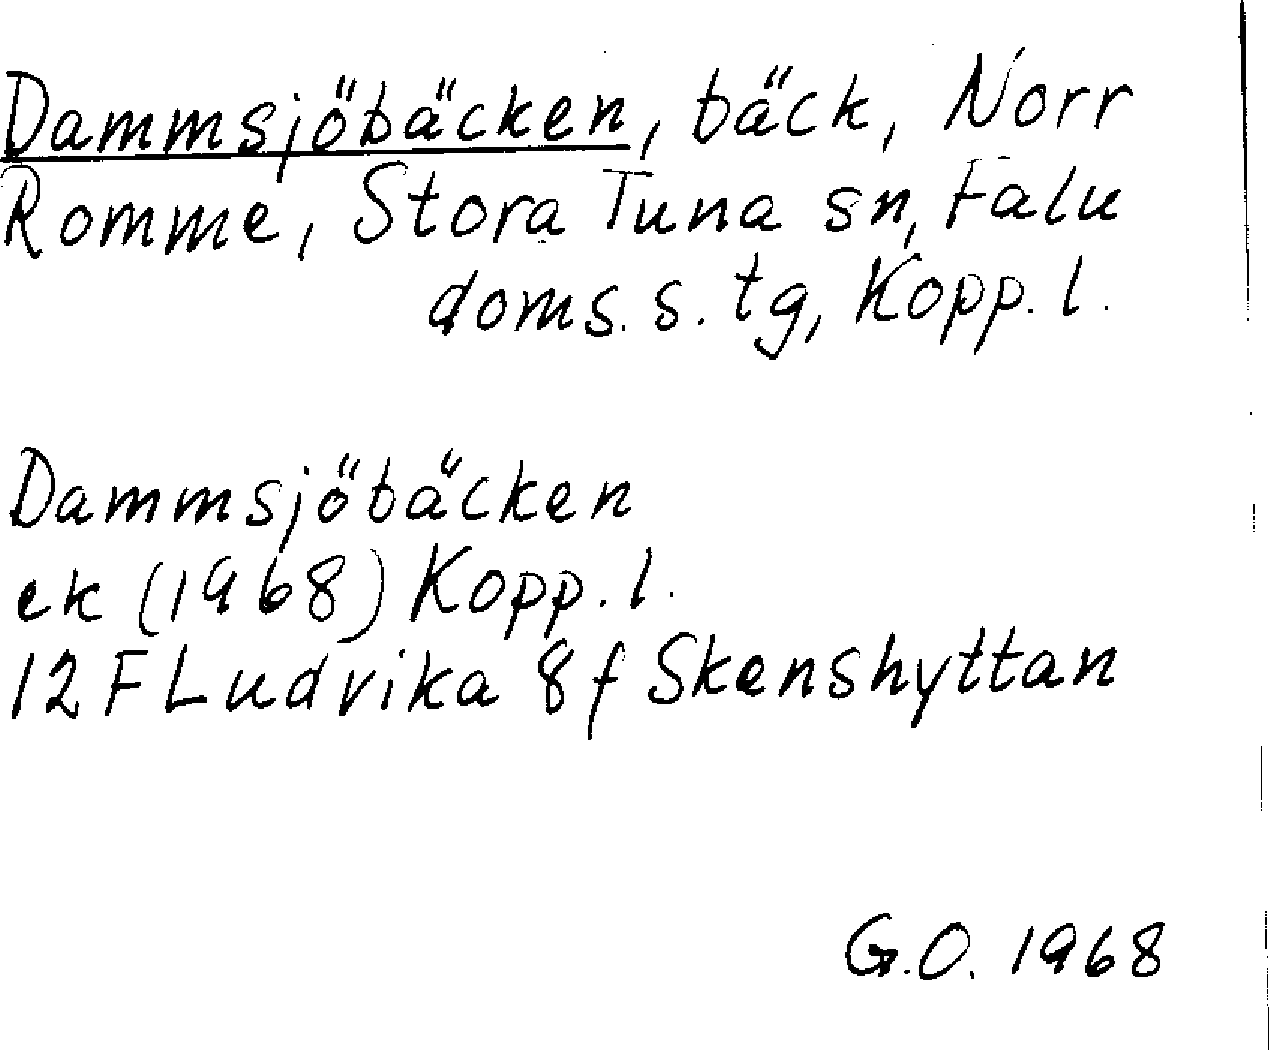 Dammsjöbäcken, bäck, Norr
Romme, Stora Tuna sn, Falu
doms. s. tg, Kopp. l.
Dammsjöbäcken
ek (1968) Kopp. l.
12 F Ludvika 8 f Skenshyttan
G.O. 1968